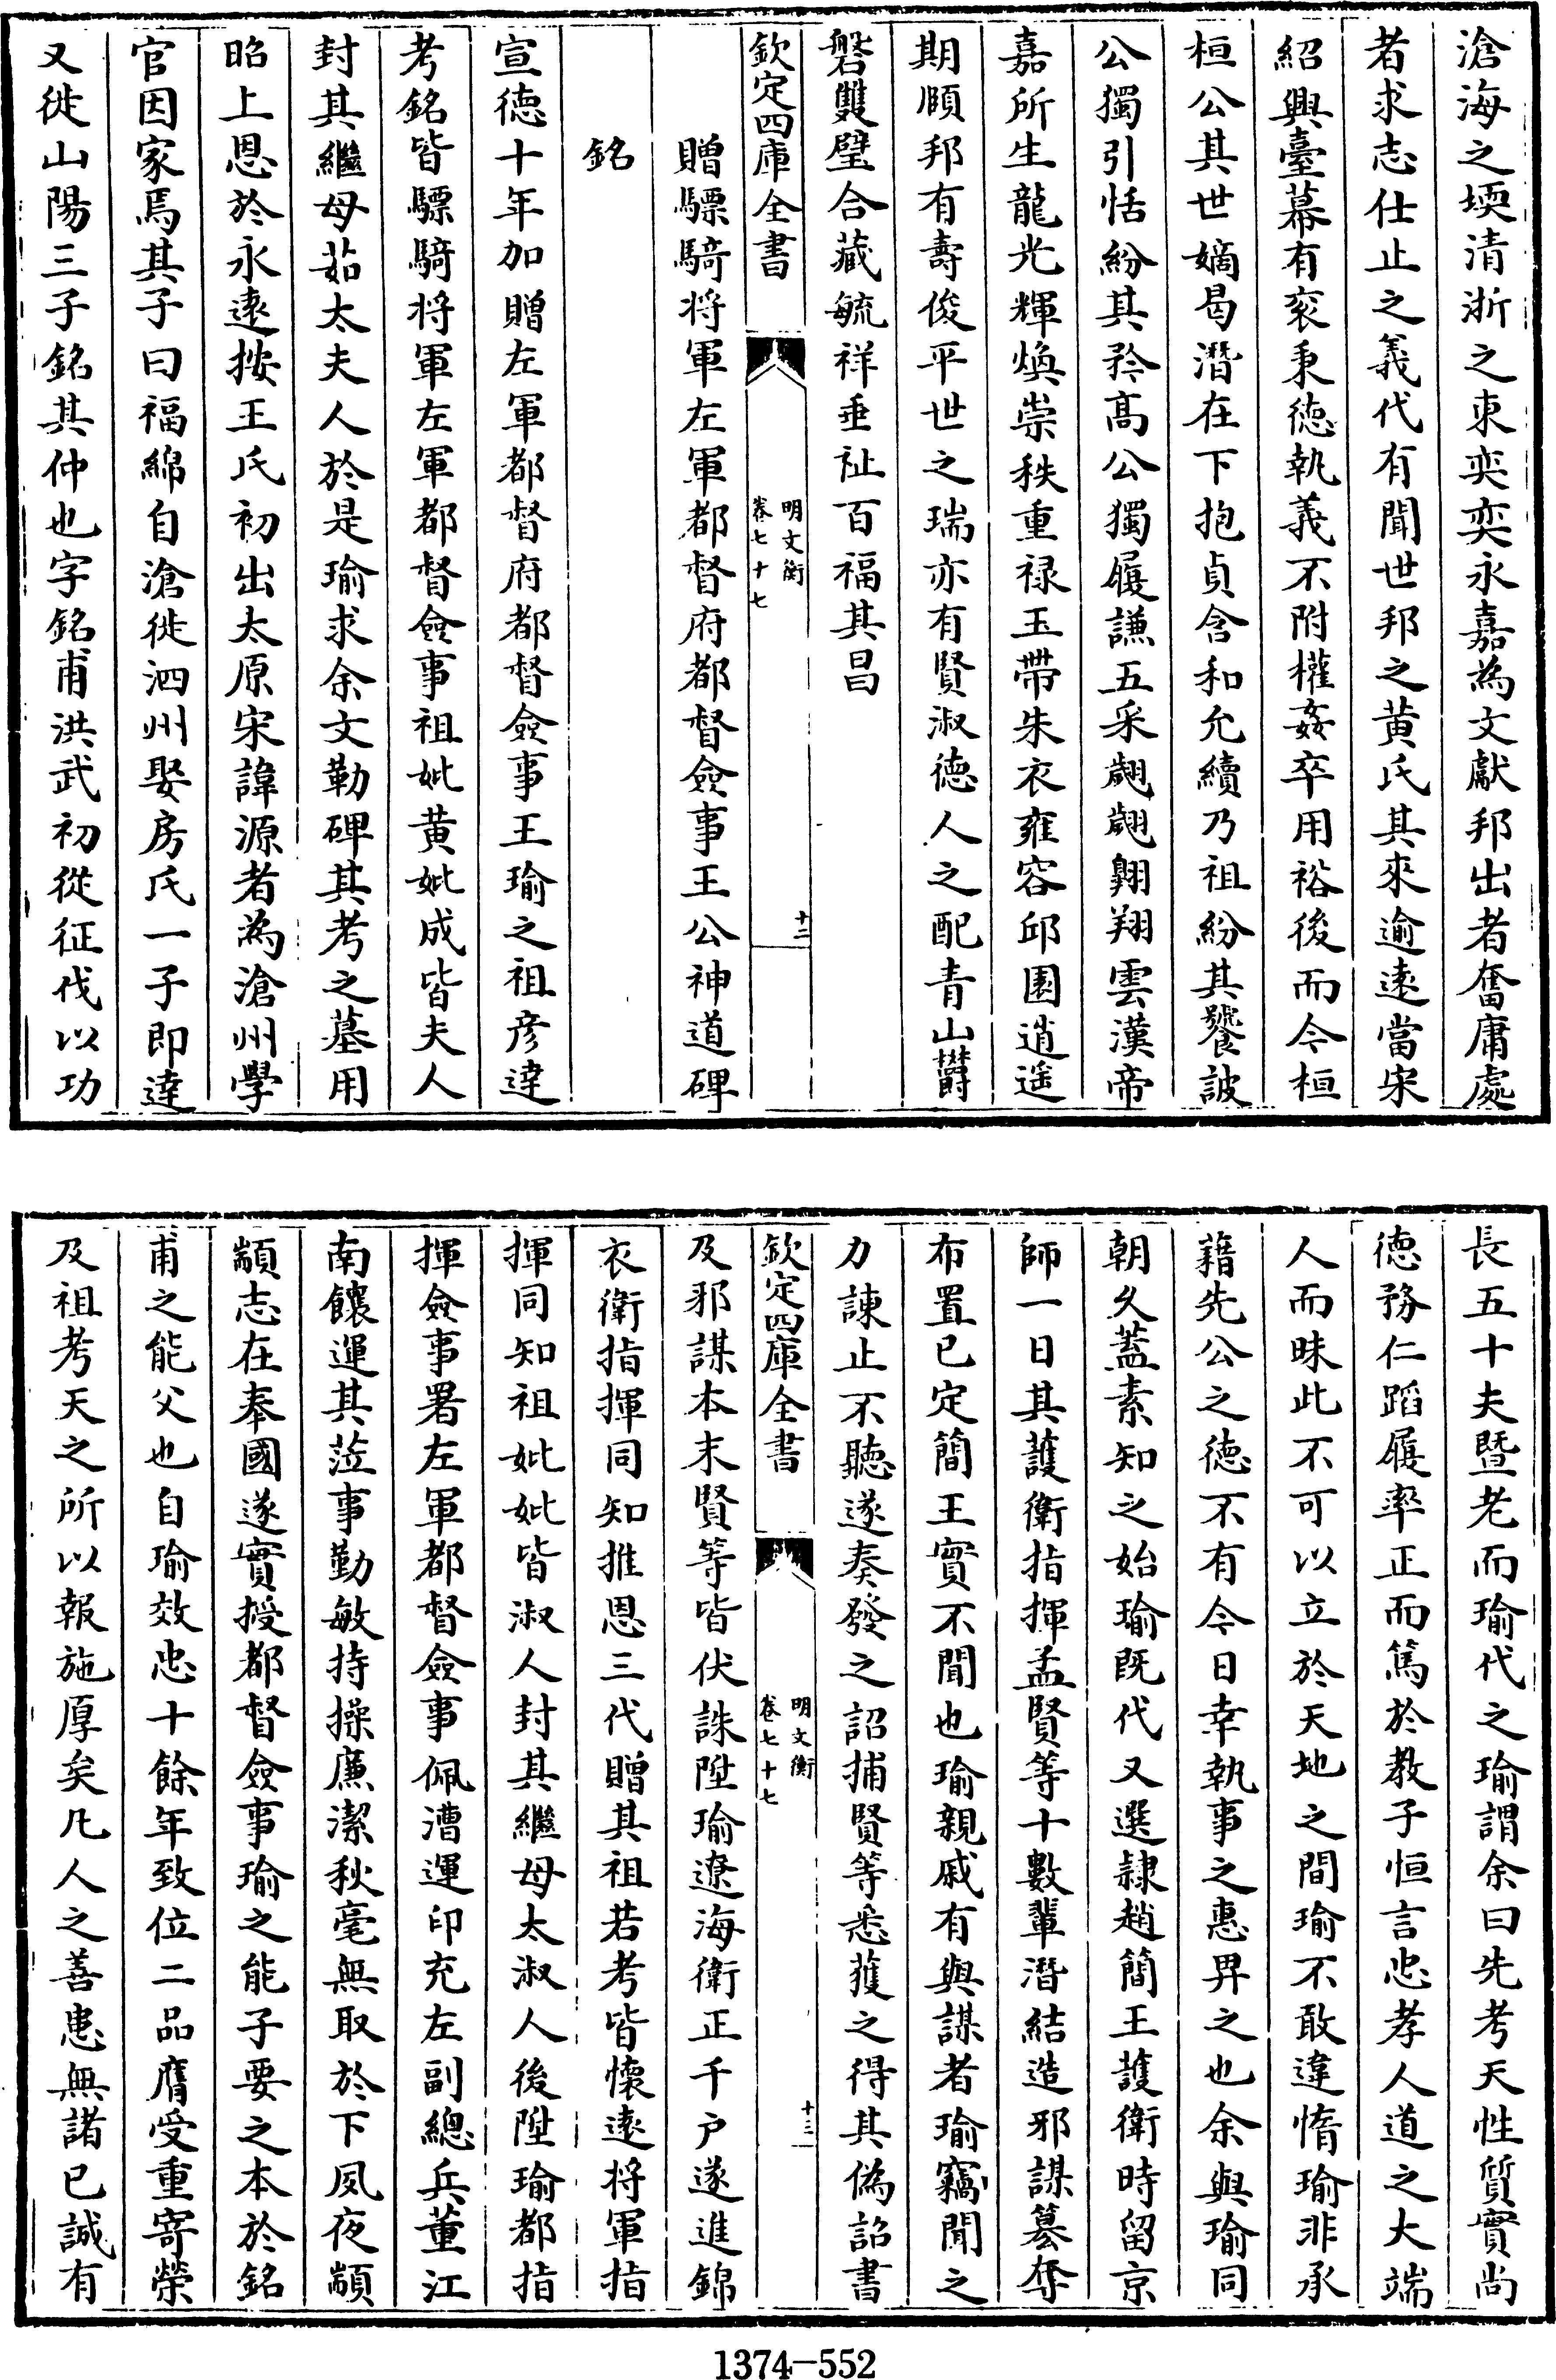 滄海之堧清浙之東奕奕永嘉為文獻邦出者奮庸處
者求志仕止之義代有聞世邦之黄氏其來逾逺當宋
紹興臺幕有衮秉徳執義不附權姦卒用裕後而今桓
桓公其世嫡曷潛在下抱貞含和允續乃祖紛其饕詖
公獨引恬紛其矜髙公獨履謙五采翽翽翺翔雲漢帝
嘉所生龍光輝煥崇秩重禄玉帶朱衣雍容邱園逍遥
期頤邦有壽俊平世之瑞亦有賢淑徳人之配青山欝
磐雙璧合藏毓祥垂祉百福其昌
欽定四庫全書
明文衡
卷七十七
十二
贈驃騎将軍左軍都督府都督僉事王公神道碑
銘
宣徳十年加贈左軍都督府都督僉事王瑜之祖彦達
考銘皆驃騎将軍左軍都督僉事祖妣黄妣成皆夫人
封其繼母茹太夫人於是瑜求余文勒碑其考之墓用
昭上恩於永逺按王氏初出太原宋諱源者為滄州學
官因家焉其子曰福綿自滄徙泗州娶房氏一子即達
又徙山陽三子銘其仲也字銘甫洪武初從征伐以功
長五十夫暨老而瑜代之瑜謂余曰先考天性質實尚
徳務仁蹈履率正而篤於教子恒言忠孝人道之大端
人而昧此不可以立於天地之間瑜不敢違惰瑜非承
藉先公之徳不有今日幸執事之惠畀之也余與瑜同
朝久蓋素知之始瑜既代又選隷趙簡王護衛時留京
師一日其護衛指揮孟賢等十數輩潛結造邪謀簒奪
布置已定簡王實不聞也瑜親戚有與謀者瑜竊聞之
力諫止不聽遂奏發之詔捕賢等悉獲之得其偽詔書
欽定四庫全書
明文衡
卷七十七
十三
及邪謀本末賢等皆伏誅陞瑜遼海衛正千户遂進錦
衣衛指揮同知推恩三代贈其祖若考皆懷逺将軍指
揮同知祖妣妣皆淑人封其繼母太淑人後陞瑜都指
揮僉事署左軍都督僉事佩漕運印充左副總兵董江
南饟運其蒞事勤敏持操廉潔秋毫無取於下夙夜顓
顓志在奉國遂實授都督僉事瑜之能子要之本於銘
甫之能父也自瑜效忠十餘年致位二品膺受重寄榮
及祖考天之所以報施厚矣凡人之善患無諸已誠有
1374—552